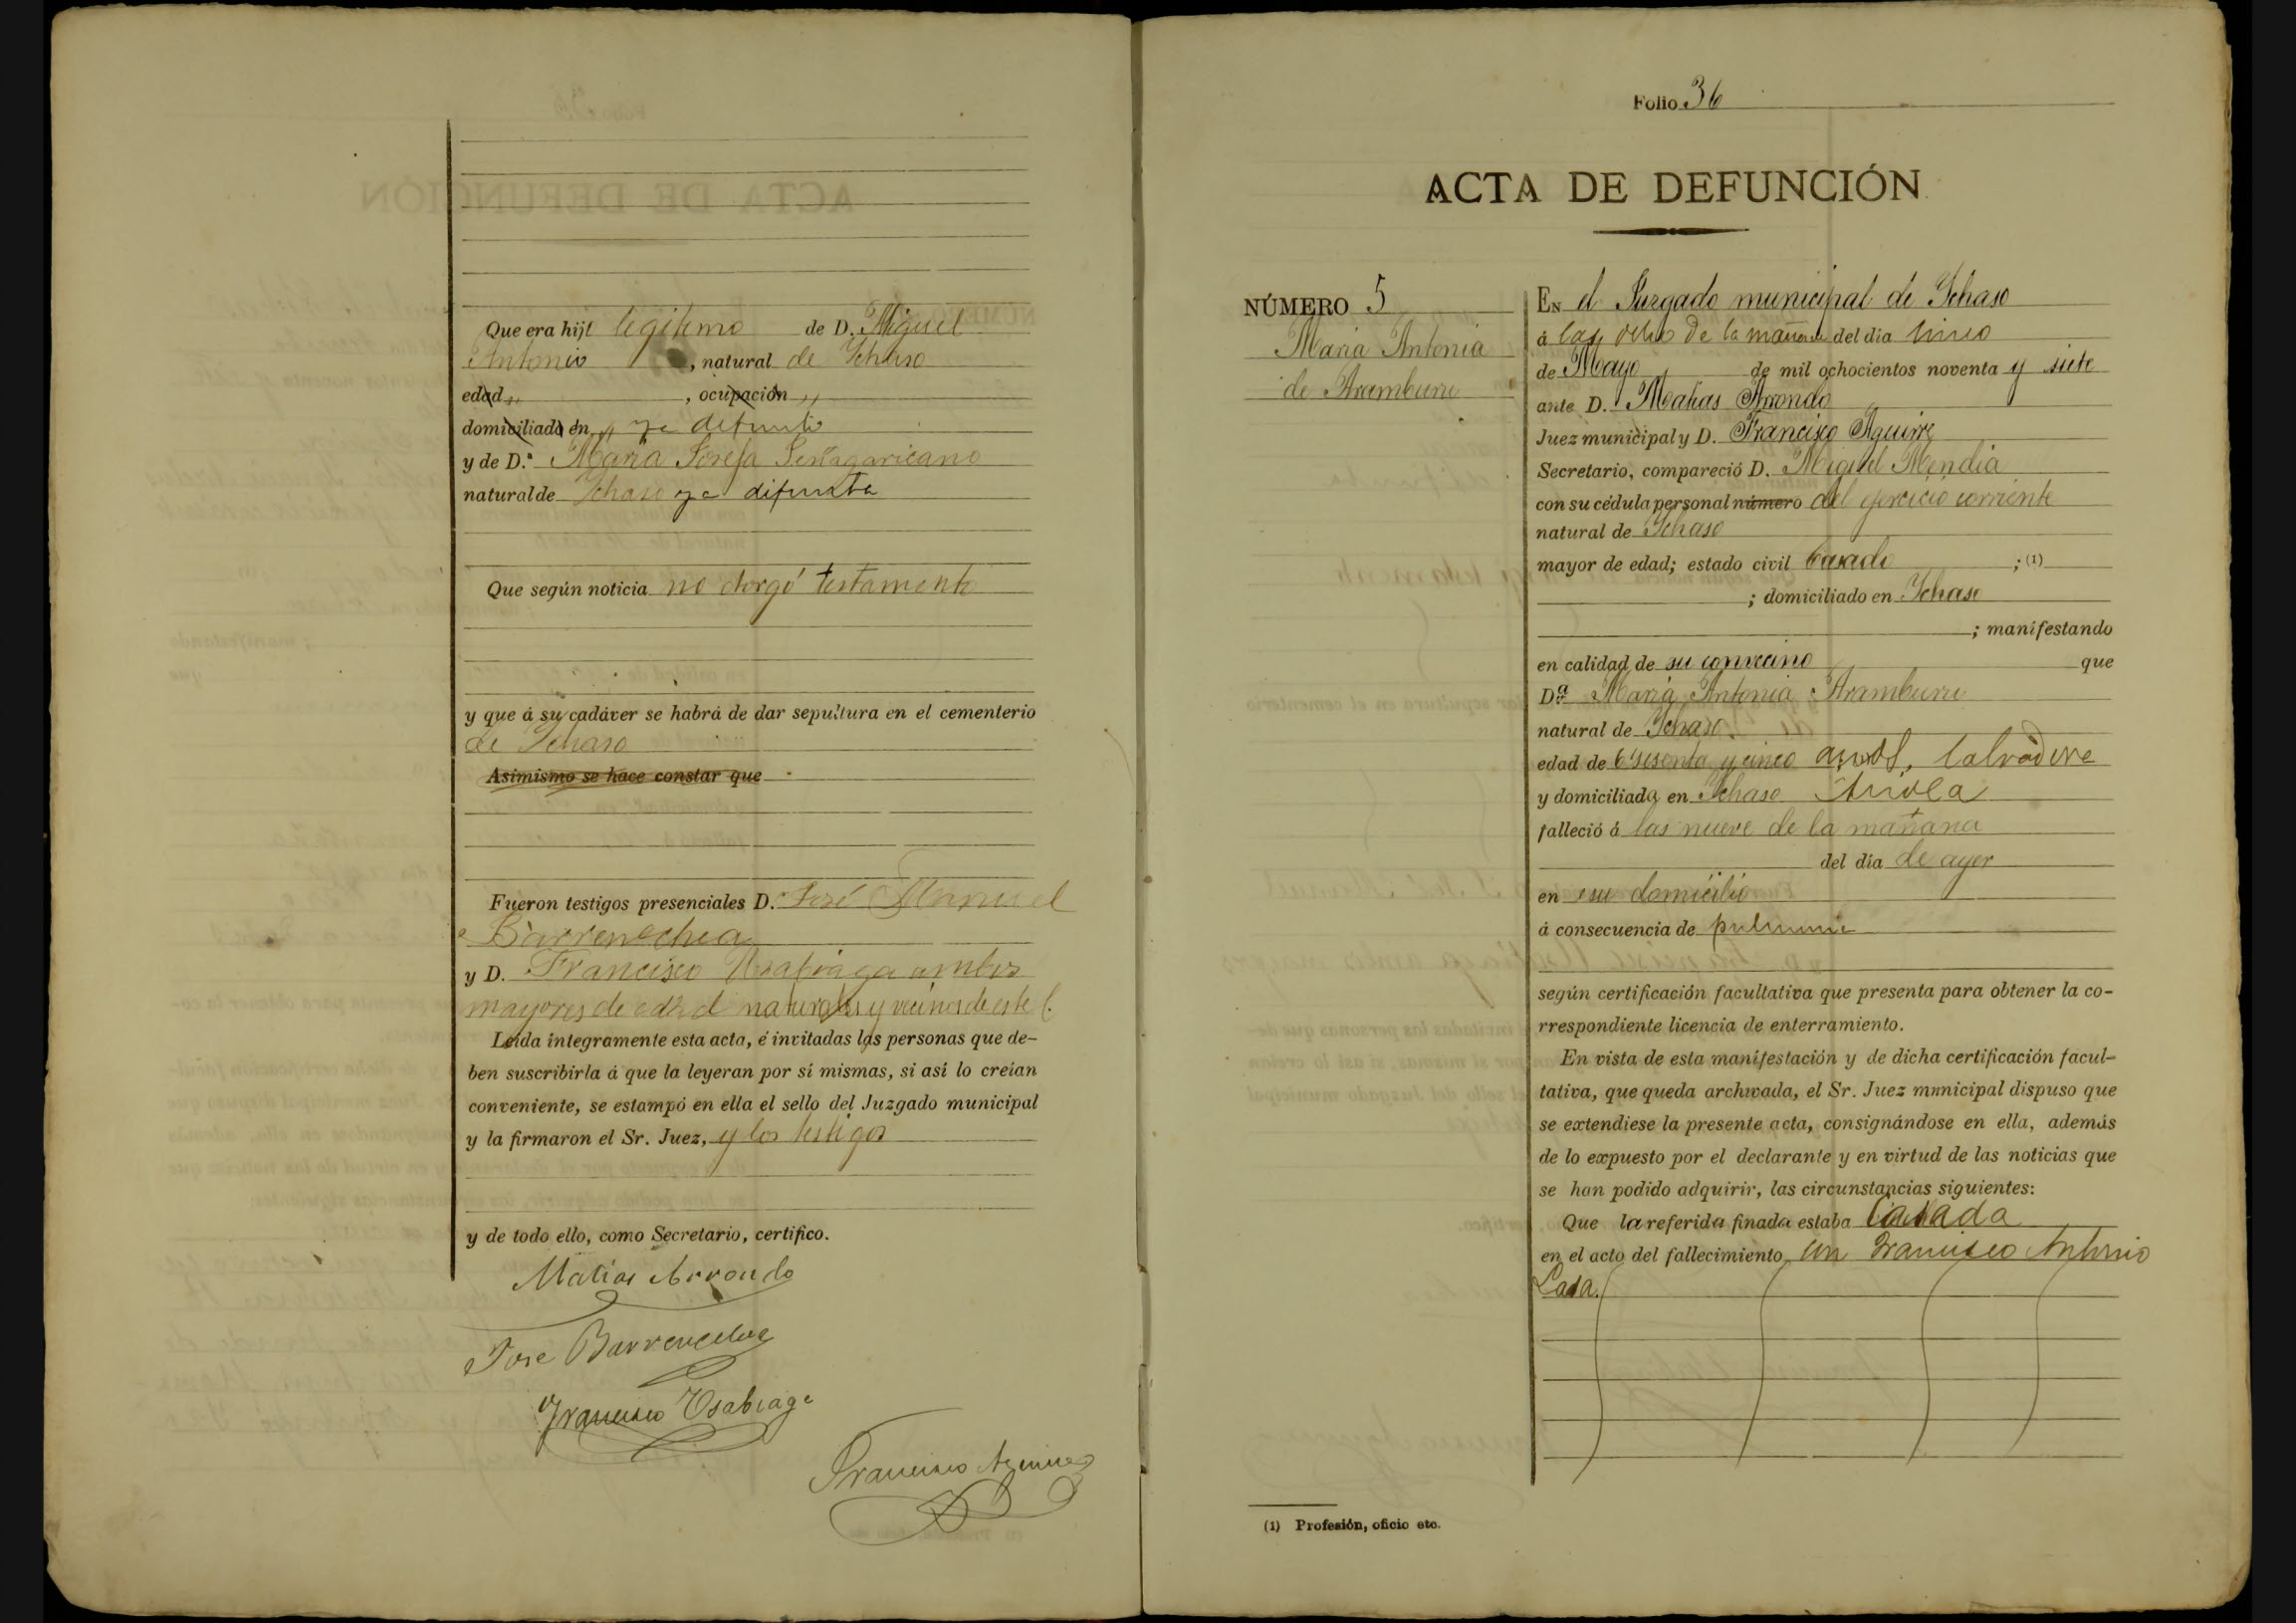 Que era hijo legitimo de D. Miguel
Antonio , natural de Ychaso
edad , ocupación
domiciliado en ya difunto
y de D.ª Maria Josefa
natural de Ychaso ya difunta
Que según noticia no otorgó testamento
y que á su cadáver se habrá de dar sepultura en el cementerio
de Ychaso
Asimismo se hace constar que
Fueron testigos presenciales D. José Manuel
Barrenechea
y D. Francisco Usabiaga ambos
mayores de edad naturales y vecinos de este
Leída íntegramente esta acta, é invitadas las personas que de-
ben suscribirla á que la leyeran por sí mismas, si así lo creían
conveniente, se estampó en ella el sello del Juzgado municipal
y la firmaron el Sr. Juez, y los testigos
y de todo ello, como Secretario, certifico.
Matias Arrondo
Jose Barrenechea
Francisco Usabiaga
Francisco Aguirre
Folio 36
ACTA DE DEFUNCIÓN
NÚMERO 5
Maria Antonia
de Aramburu
EN el Juzgado municipal de Ychaso
á las ocho de la mañana del día cinco
de Mayo de mil ochocientos noventa y siete
ante D. Matias Arrondo
Juez municipal y D. Francisco Aguirre
Secretario, compareció D. Miguel Mendia
con su cédula personal número del ejercicio corriente
natural de Ychaso
mayor de edad; estado civil Casado ; (1)
; domiciliado en Ychaso
; manifestando
en calidad de su convecino que
Dª Maria Antonia Aramburu
natural de Ychaso
edad de sesenta y cinco años,
y domiciliada en Ychaso
falleció á las nueve de la mañana
del día de ayer
en su domicilio
á consecuencia de
según certificación facultativa que presenta para obtener la co-
rrespondiente licencia de enterramiento.
En vista de esta manifestación y de dicha certificación facul-
tativa, que queda archivada, el Sr. Juez mnnicipal dispuso que
se extendiese la presente acta, consignándose en ella, además
de lo expuesto por el declarante y en virtud de las noticias que
se han podido adquirir, las circunstancias siguientes:
Que la referida finada estaba Casada
en el acto del fallecimiento, con Francisco Antonio
Lasa.
(1) Profesión, oficio etc.